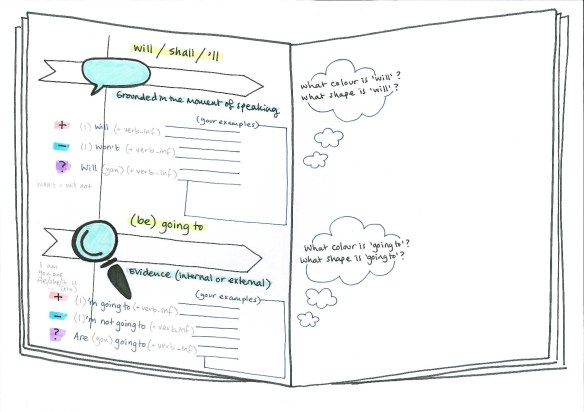 will / shall / 'll
Grounded in the moment of speaking
(your examples)
+ (I) will (+ verb_inf)
− (I) won't (+ verb_inf)
? Will (you) (+ verb_inf)
won't = will not
(be) going to
Evidence (internal or external)
I am
you are
he/she/it is
(your examples)
+ (I)'m going to (+ verb_inf)
− (I)'m not going to (+ verb_inf)
? Are (you) going to (+ verb_inf)
What colour is 'will'?
What shape is 'will'?
What colour is 'going to'?
What shape is 'going to'?